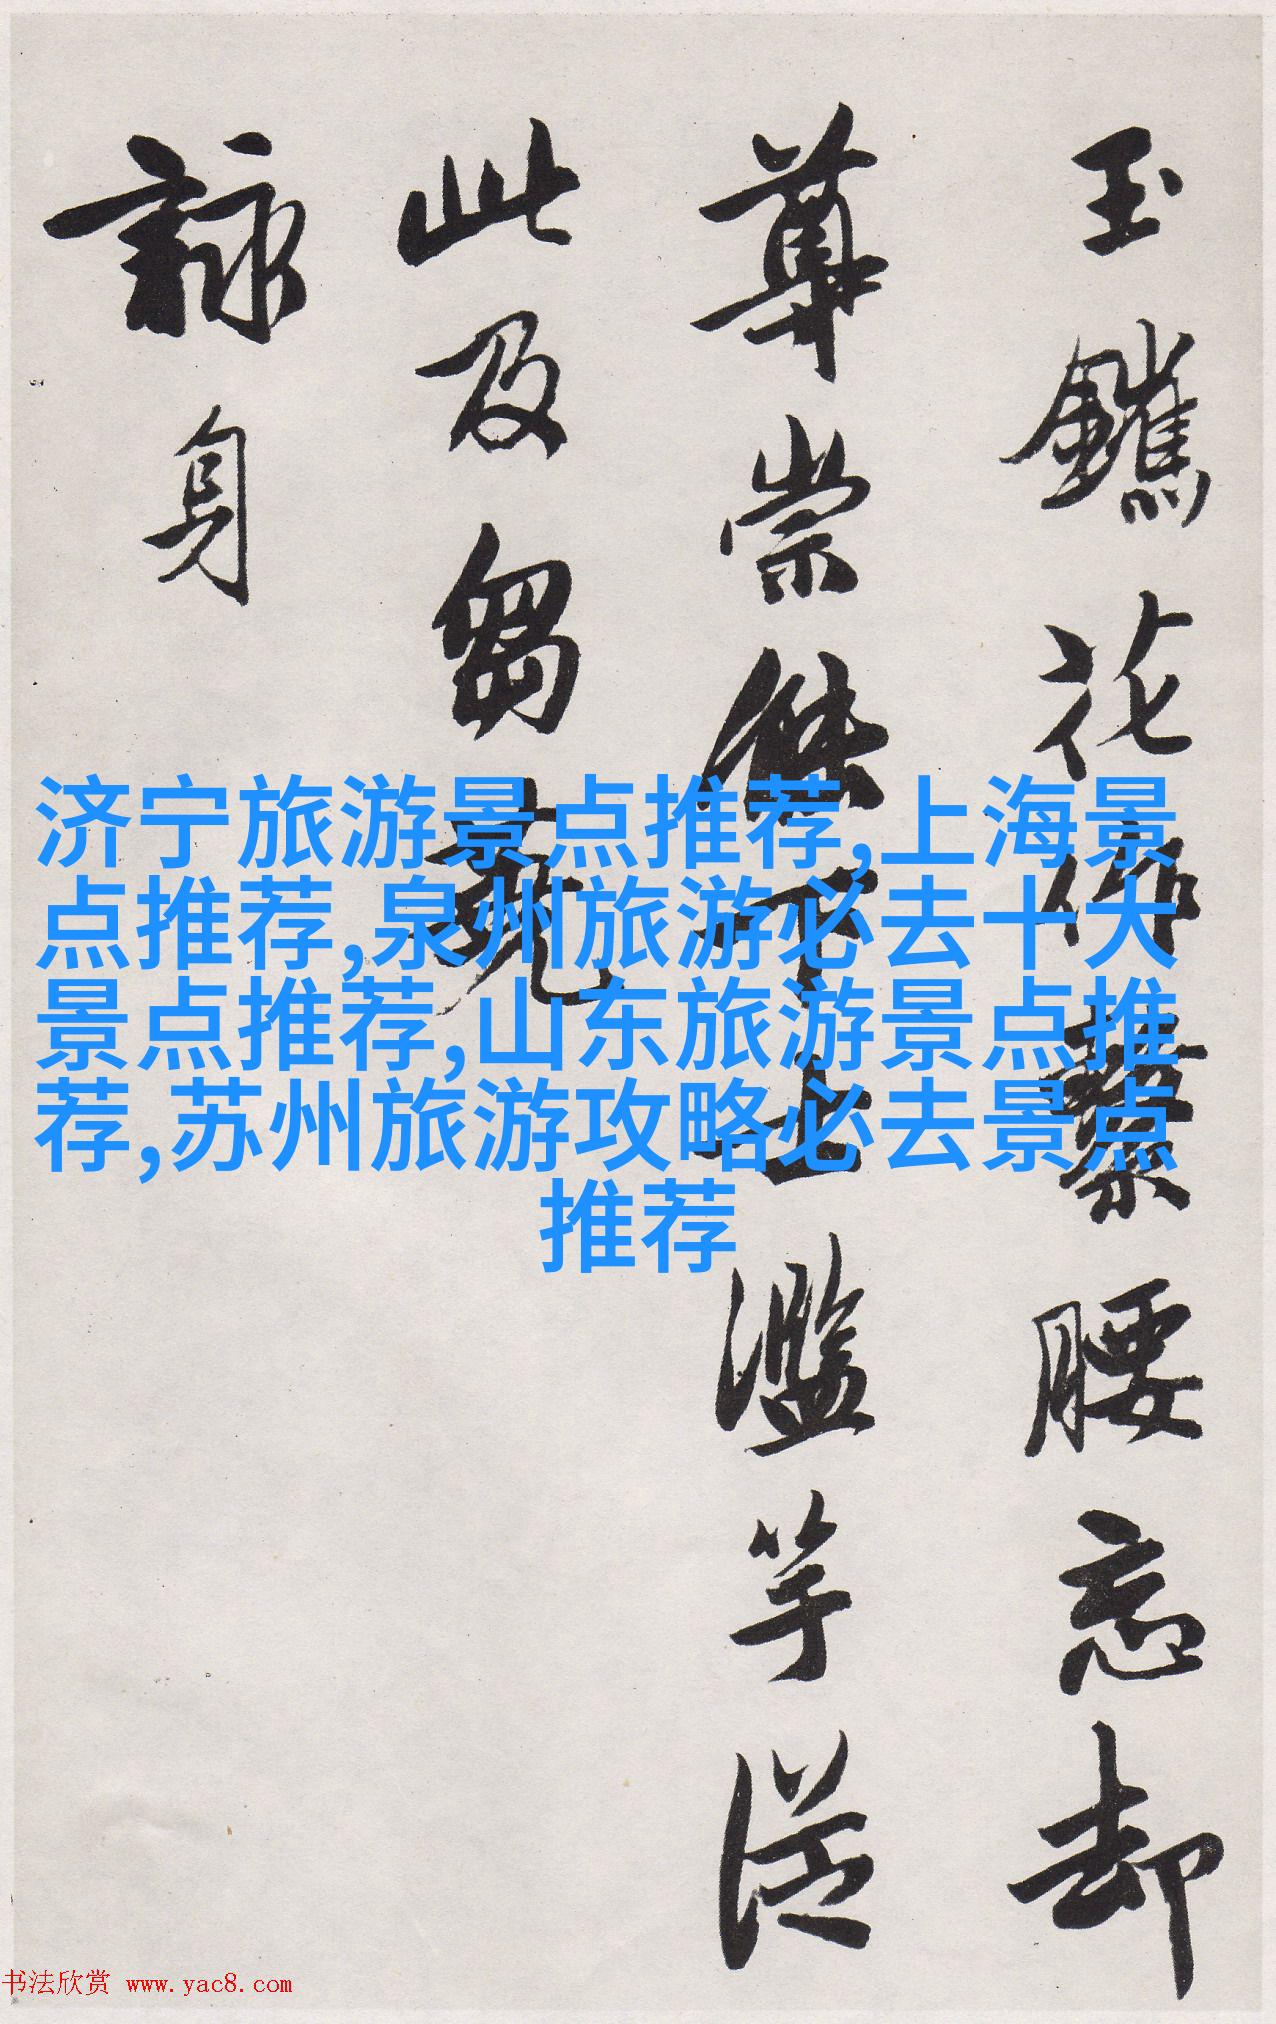 玉鑱花作繫腰忘却
尊崇傑下士濫竽從
此及芻蕘
詠身
济宁旅游景点推荐,上海景
点推荐,泉州旅游必去十大
景点推荐,山东旅游景点推
荐,苏州旅游攻略必去景点
推荐
书法欣赏 www.yac8.com